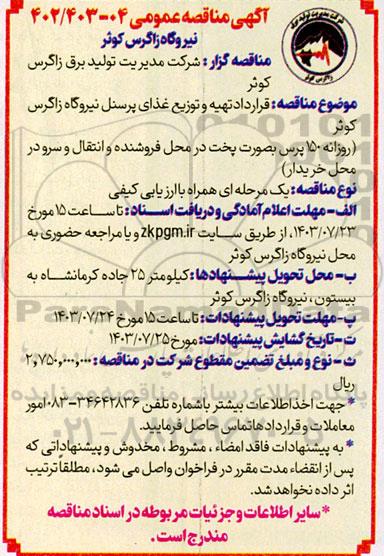 آگهی مناقصه عمومی ۰۴-۴۰۲/۴۰۳
نیروگاه زاگرس کوثر
مناقصه گزار: شرکت مدیریت تولید برق زاگرس
کوثر
موضوع مناقصه: قرارداد تهیه و توزیع غذای پرسنل نیروگاه زاگرس
کوثر
(روزانه ۱۵۰ پرس بصورت پخت در محل فروشنده و انتقال و سرو در
محل خریدار)
نوع مناقصه: یک مرحله ای همراه با ارزیابی کیفی
الف- مهلت اعلام آمادگی و دریافت اسناد: تا ساعت ۱۵ مورخ
۱۴۰۳/۰۷/۲۳، از طریق سایت zkpgm.ir و یا مراجعه حضوری به
محل نیروگاه زاگرس کوثر
ب- محل تحویل پیشنهادها: کیلومتر ۲۵ جاده کرمانشاه به
بیستون، نیروگاه زاگرس کوثر
پ- مهلت تحویل پیشنهادات: تا ساعت ۱۵ مورخ ۱۴۰۳/۰۷/۲۴
ت- تاریخ گشایش پیشنهادات: مورخ ۱۴۰۳/۰۷/۲۵
ث- نوع و مبلغ تضمین مقطوع شرکت در مناقصه: ۲,۷۵۰,۰۰۰,۰۰۰
ریال
* جهت اخذ اطلاعات بیشتر با شماره تلفن ۳۴۶۴۲۸۳۶-۰۸۳ امور
معاملات و قراردادها تماس حاصل فرمایید.
* به پیشنهادات فاقد امضاء، مشروط، مخدوش و پیشنهاداتی که
پس از انقضاء مدت مقرر در فراخوان واصل می شود، مطلقاً ترتیب
اثر داده نخواهد شد.
* سایر اطلاعات و جزئیات مربوطه در اسناد مناقصه
مندرج است.